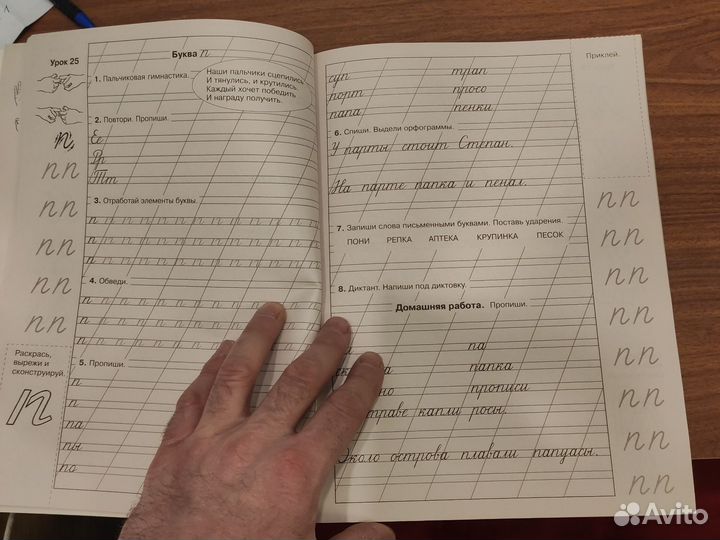 Урок 25
Буква п
1. Пальчиковая гимнастика.
Наши пальчики сцепились
И тянулись, и крутились.
Каждый хочет победить
И награду получить.
2. Повтори. Пропиши.
п
Ее
Рр
Тт
пп
пп
пп
пп
пп
3. Отработай элементы буквы.
п п п п п п п п п п п п п
п п п п п п п п п п п п п
п п п п п п п п п п п п п
4. Обведи.
п п п п п п п п п п п п п
п п п п п п п п п п п п п
п п п п п п п
5. Пропиши.
п
п
па
пы
по
Раскрась,
вырежи и
сконструируй.
п
суп трап
порт просо
папа пенки
6. Спиши. Выдели орфограммы.
У парты стоит Степан.
На парте папка и пенал.
7. Запиши слова письменными буквами. Поставь ударения.
ПОНИ РЕПКА АПТЕКА КРУПИНКА ПЕСОК
8. Диктант. Напиши под диктовку.
Домашняя работа. Пропиши.
па
папка
но прописи
траве капли росы.
Около острова плавали папуасы.
Приклей.
пп
пп
пп
пп
пп
пп
пп
пп
Avito